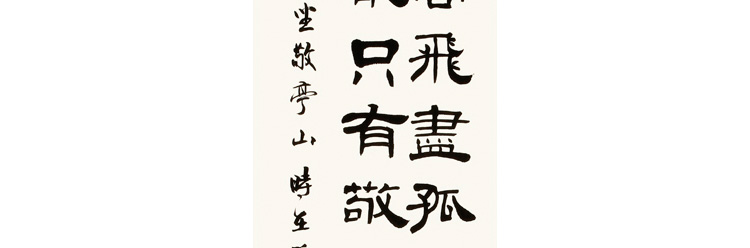 飛盡孤
只有敬
坐敬亭山時在